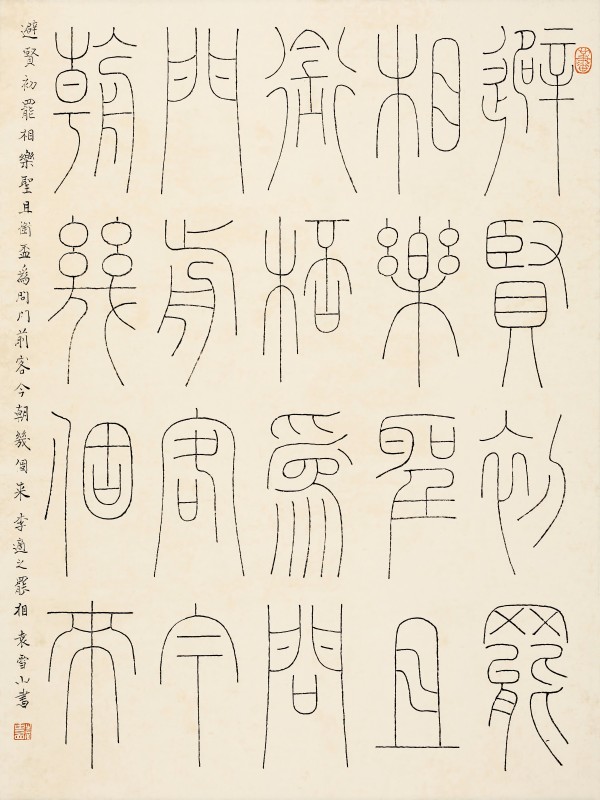 避賢初罷
相樂聖且
銜桮爲問
門前客今
朝幾個來
避賢初罷相樂聖且銜盃爲問門前客今朝幾個来 李適之罷相 袁雪小書